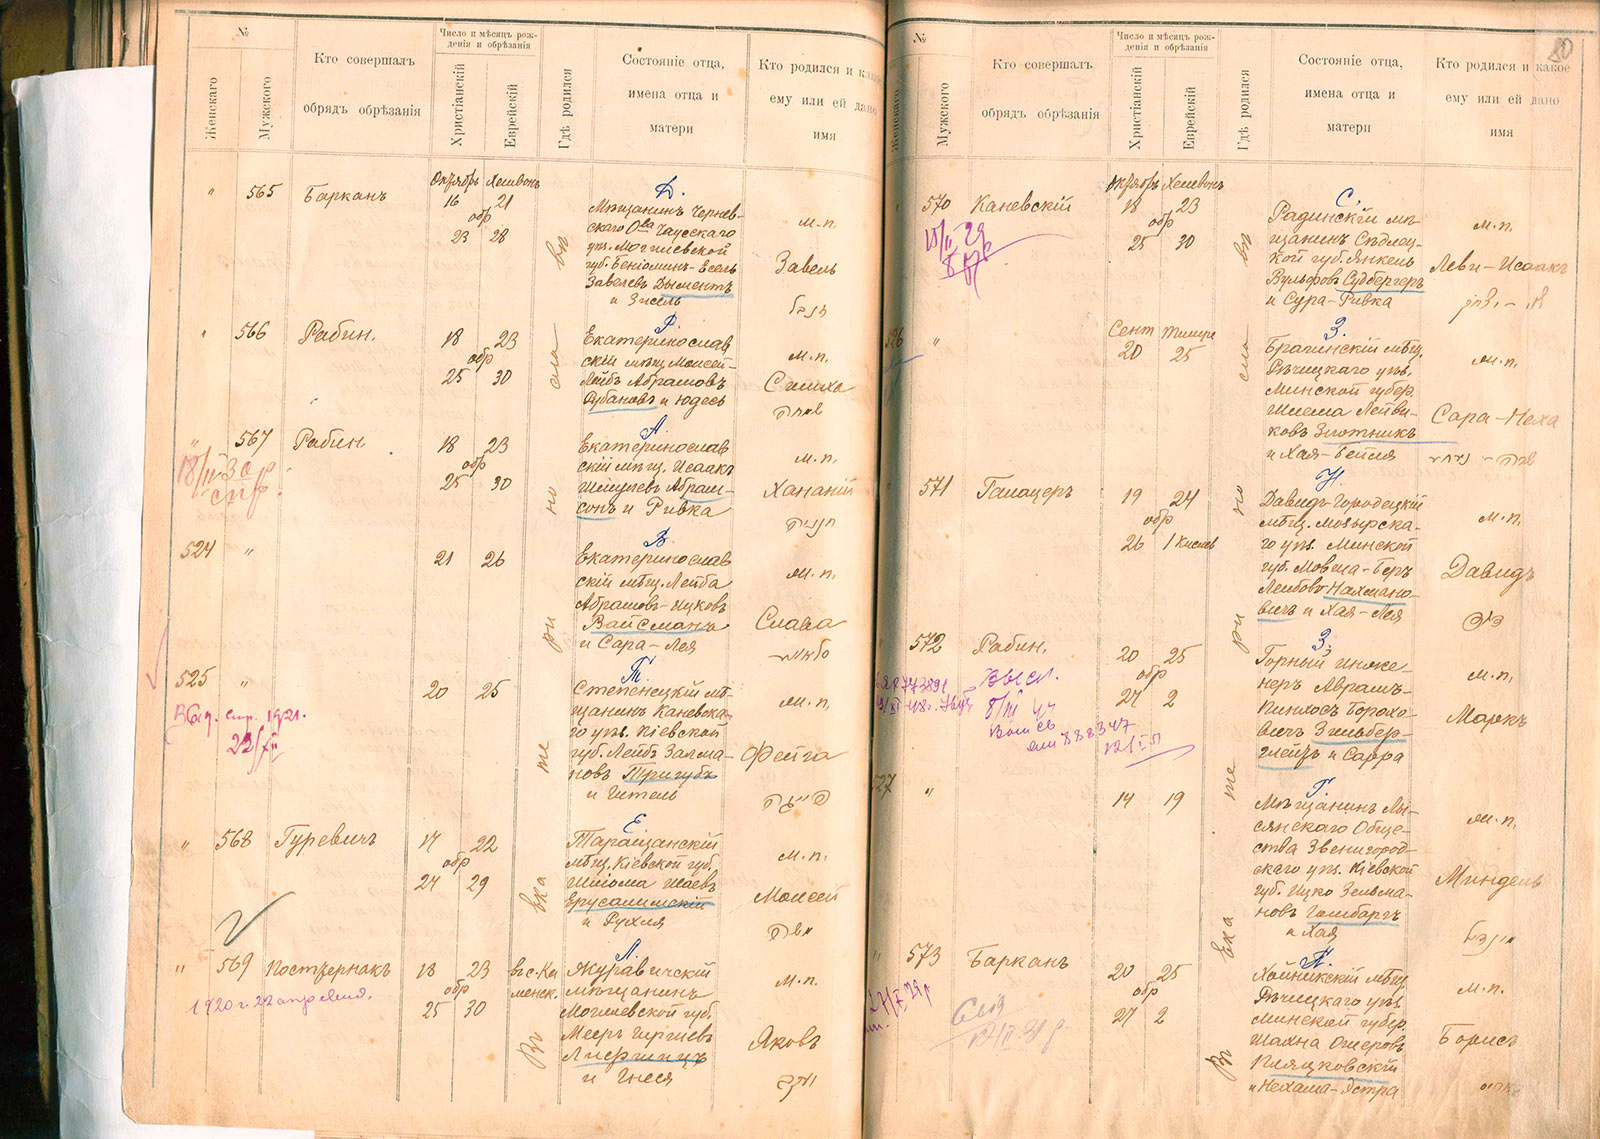 №
Женскаго
Мужского
Кто совершалъ
обрядъ обрѣзанія
Число и мѣсяцъ рож-
денія и обрѣзанія
Христіанскій
Еврейскій
Гдѣ родился
Состояніе отца,
имена отца и
матери
Кто родился и какое
ему или ей дано
имя
Въ Екатеринославѣ
" 565 Барканъ
Октябрь Хешвонъ
16 21
обр
23 28
Д.
Мѣщанинъ Чернев-
скаго О-ва Чаусскаго
уѣз. Могилевской
губ. Беніоминъ-Есель
Завелевъ Дыментъ
и Зисель
м.п.
Завель
" 566 Рабин.
18 23
обр
25 30
Р.
Екатеринослав
скій мѣщ. Моисей-
Лейбъ Абрамовъ
Рубановъ и Юдесь
м.п.
Симха
שמחה
" 567 Рабин
18/II 30
18 23
обр
25 30
А.
Екатеринослав
скій мѣщ. Исаакъ
Шмулевъ Абрам-
сонъ и Ривка
м.п.
Хананій
חנניה
524 "
21 26
В.
Екатеринослав
скій мѣщ. Лейба
Абрамовъ-Ицковъ
Вайсманъ
и Сара-Лея
м.п.
Слава
525 "
20 25
Т.
Степенецкій мѣ-
щанинъ Каневска-
го уѣз. Кіевской
губ. Лейбъ Залма-
новъ Тригубъ
и Гитель
м.п.
Фейга
פייגה
" 568 Гуревичъ
17 22
обр
24 29
Е.
Таращанскій
мѣщ. Кіевской губ.
Шліома Шаевъ
Ерусалимскій
и Рухля
м.п.
Моисей
משה
" 569 Постернакъ
1920 г. 22 апреля.
18 23
обр
25 30
въ с. Ка
менск.
Л.
Журавичскій
мѣщанинъ
Могилевской губ.
Мееръ Гиршевъ
и Гнеся
м.п.
Яковъ
יעקב
80
№
Женскаго
Мужского
Кто совершалъ
обрядъ обрѣзанія
Число и мѣсяцъ рож-
денія и обрѣзанія
Христіанскій
Еврейскій
Гдѣ родился
Состояніе отца,
имена отца и
матери
Кто родился и какое
ему или ей дано
имя
Въ Екатеринославѣ
570 Каневскій
Октябрь Хешвонъ
18 23
обр
25 30
С.
Радинскій мѣ-
щанинъ Сѣдлец-
кой губ. Янкель
Вульфовъ Судбергеръ
и Сура-Ривка
м.п.
Леви-Исаакъ
526 "
Сент Тишре
20 25
З.
Брагинскій мѣщ.
Рѣчицкаго уѣз.
Минской губер.
Шлема Лейви-
ковъ Злотникъ
и Хая-Бейля
м.п.
Сара-Неха
" 571 Галацеръ
19 24
обр
26 1 Кислев
Н.
Давидъ-Городецкій
мѣщ. Мозырска-
го уѣз. Минской
губ. Мовша-Беръ
Лейбовъ Нахмано-
вичъ и Хая-Лея
м.п.
Давидъ
דוד
572 Рабин.
20 25
обр
27 2
З.
Горный инже-
неръ Аврамъ-
Пинхосъ Борохо-
вичъ Зильбер-
глейтъ и Сарра
м.п.
Маркъ
527 "
14 19
Г.
Мѣщанинъ Лы-
сянскаго Обще-
ства Звенигород-
скаго уѣз. Кіевской
губ. Ицко Зельма-
новъ Гомбаргъ
и Хая
м.п.
Миндель
" 573 Барканъ
20 25
обр
27 2
П.
Хойникскій мѣщ.
Рѣчицкаго уѣз.
Минской губер.
Шахна Ошеровъ
Пляцковскій
и Нехама-Эстра
м.п.
Борисъ